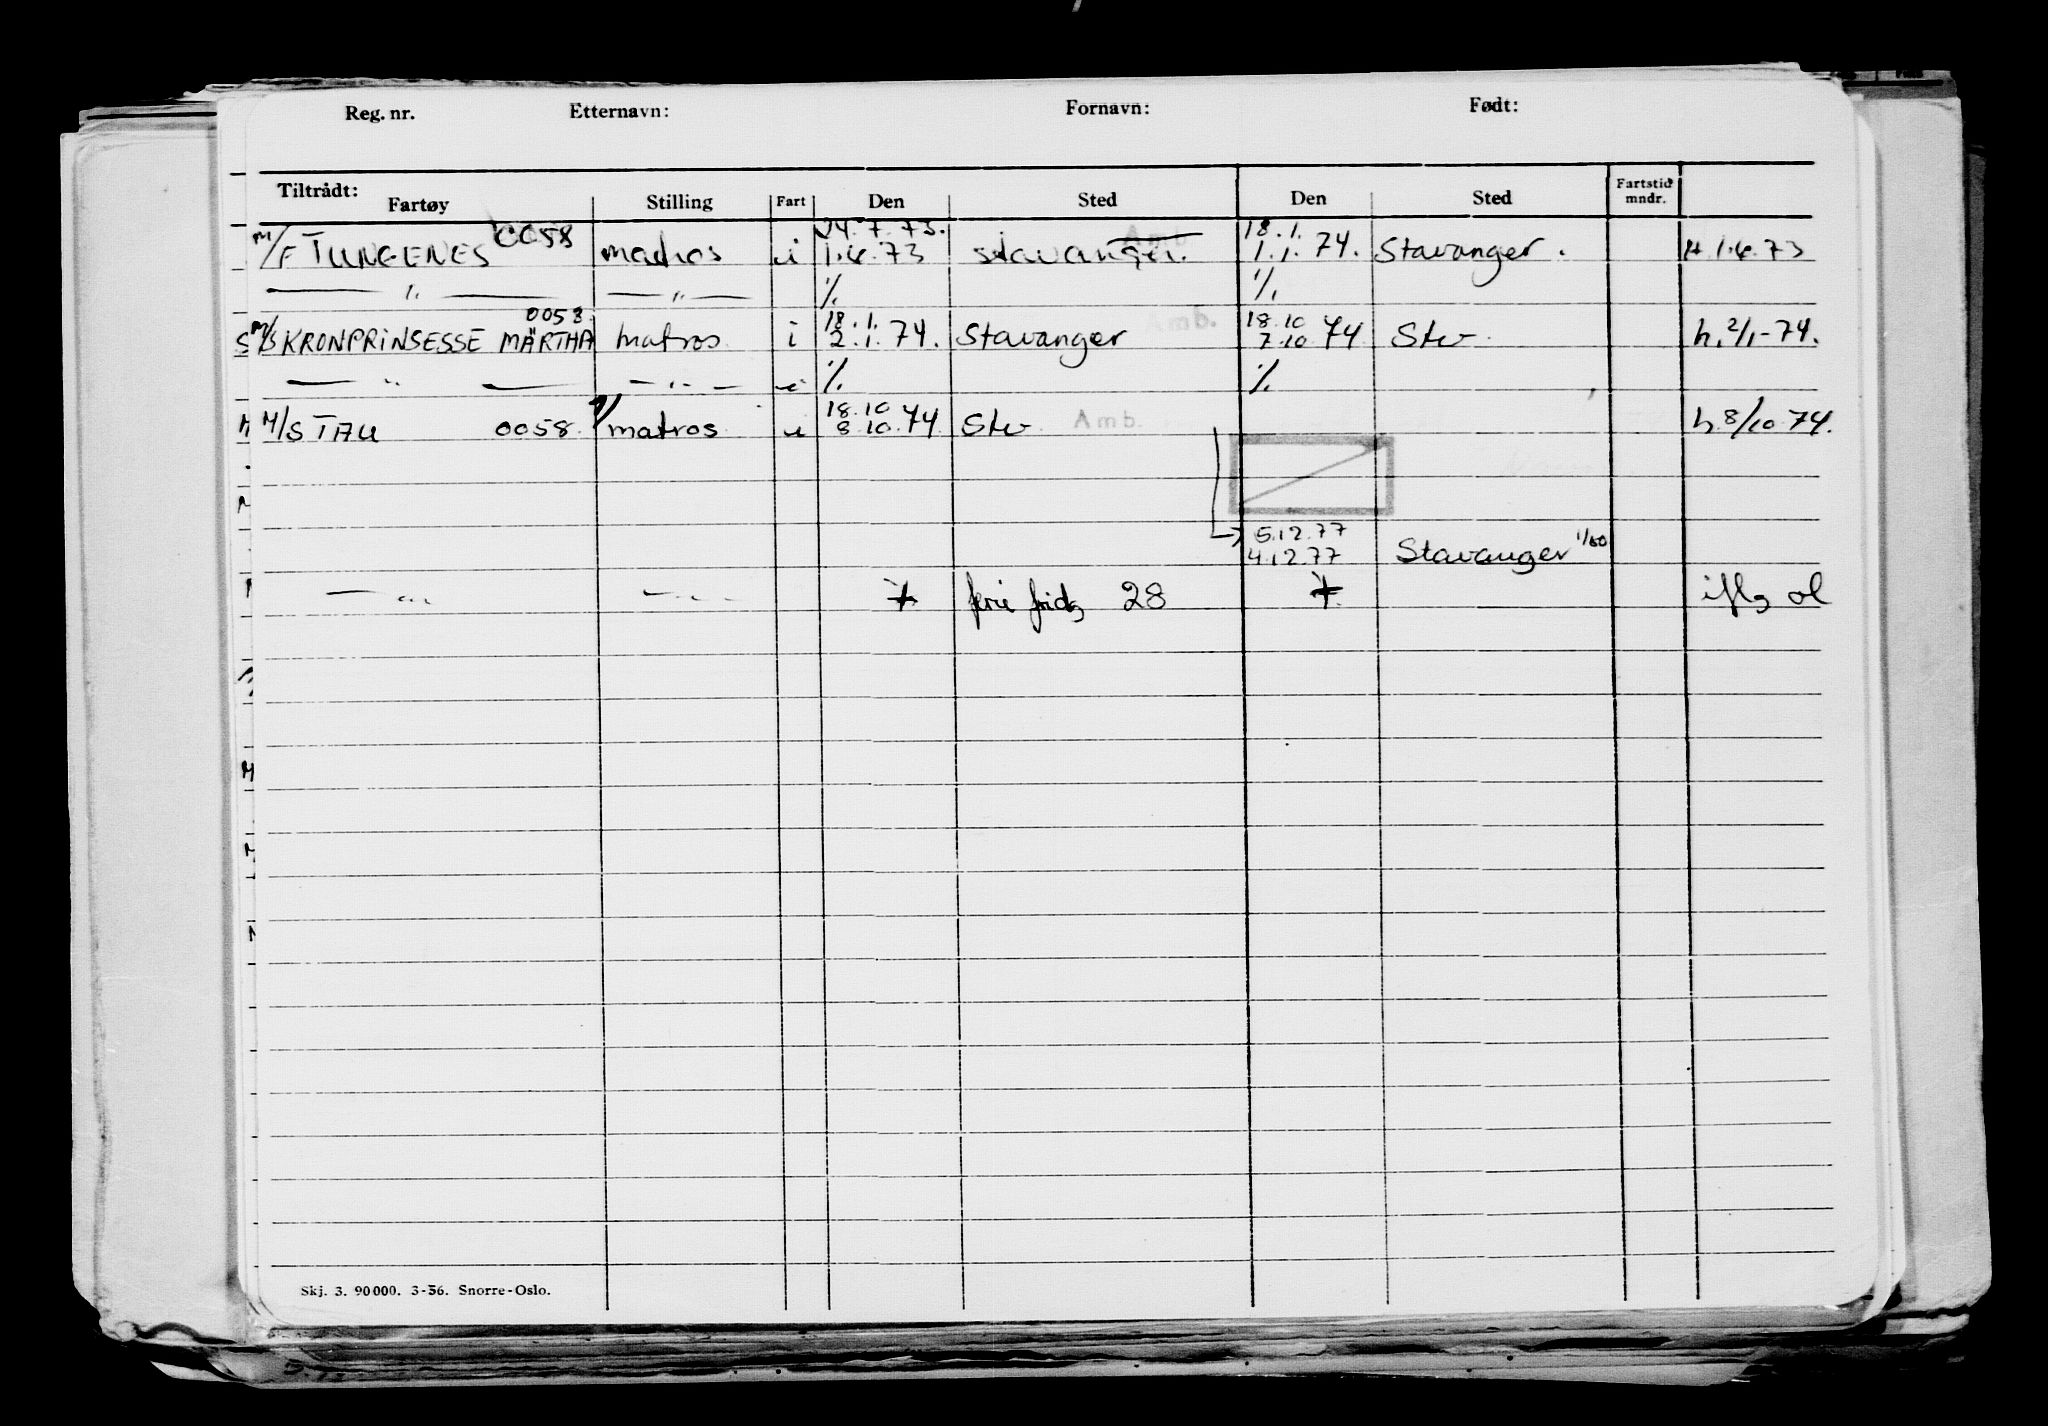 Reg. nr. Etternavn: Fornavn: Født:
Tiltrådt:
Fartøy Stilling Fart Den Sted Den Sted Fartstid mndr.
24.7.73. 18.1.
M/F TUNGENES 0058 matros i 1.6.73 Stavanger. 1.1.74. Stavanger. H 1.6.73
— " — — " — % %
0058 18.1. Amb. 18.10
M/S KRONPRINSESSE MÄRTHA matros i 2.1.74. Stavanger 7.10 74 Stv. h. 2/1-74.
— " — — " — i % %
18.10
M/S TAU 0058 matros i 8.10.74 Stv Amb. h. 8/10-74.
5.12.77
4.12.77 Stavanger 1/80
— " — — " — ferie frid, 28
Skj. 3. 90 000. 3-56. Snorre-Oslo.